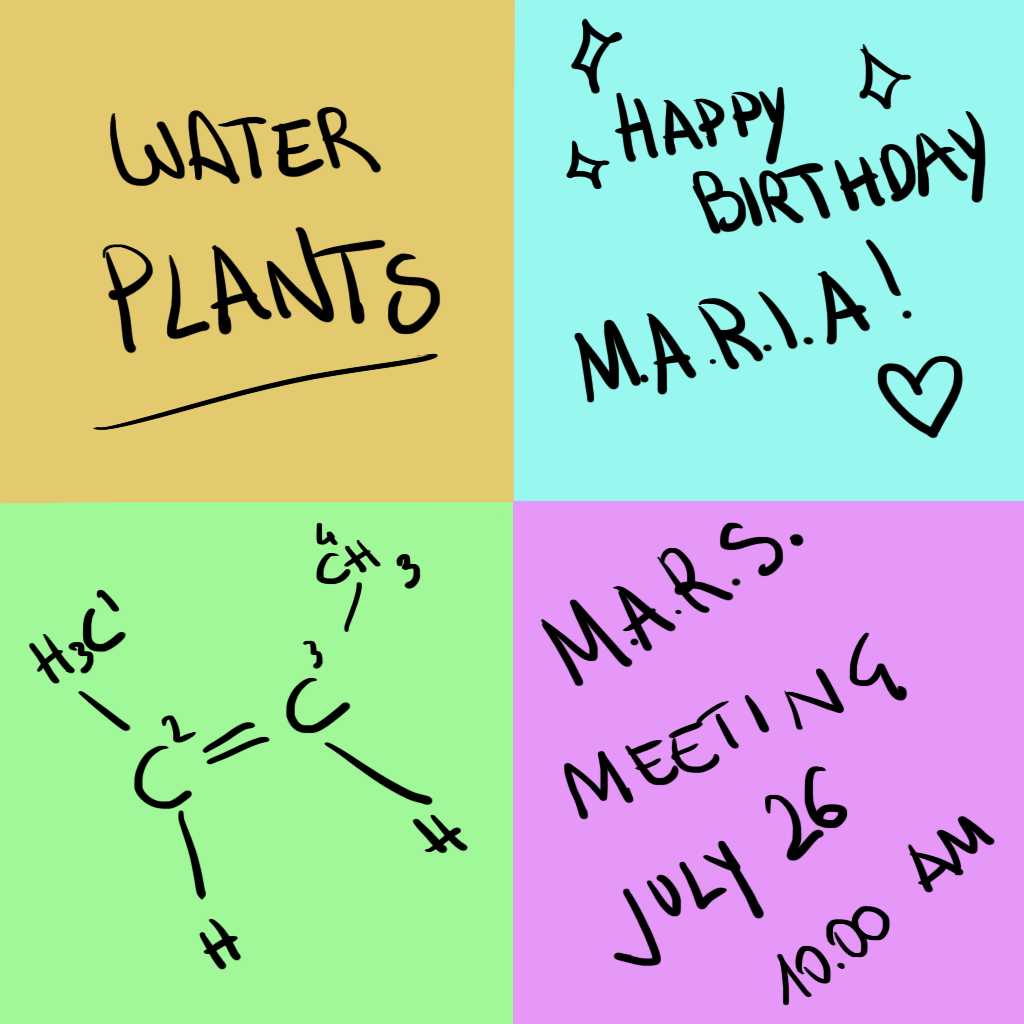 WATER
PLANTS
HAPPY
BIRTHDAY
M.A.R.I.A!
4
CH3
H3C1
3
C
2
C
H
H
M.A.R.S.
MEETING
JULY 26
10.00 AM